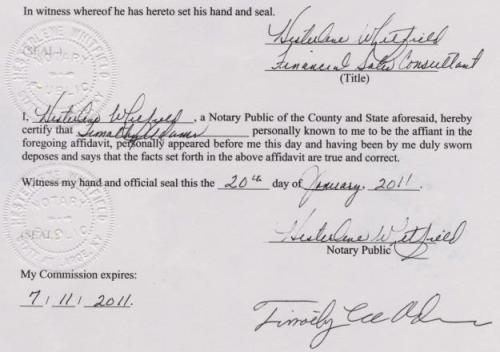 In witness whereof he has hereto set his hand and seal.
Hesterlene Whitfield
(SEAL)
Financial Sales Consultant
(Title)
I, Hesterlene Whitfield, a Notary Public of the County and State aforesaid, hereby
certify that Timothy Adams personally known to me to be the affiant in the
foregoing affidavit, personally appeared before me this day and having been by me duly sworn
deposes and says that the facts set forth in the above affidavit are true and correct.
Witness my hand and official seal this the 20th day of January, 2011.
(SEAL)
Hesterlene Whitfield
Notary Public
My Commission expires:
7/11/2011.
Timothy Lee Adams